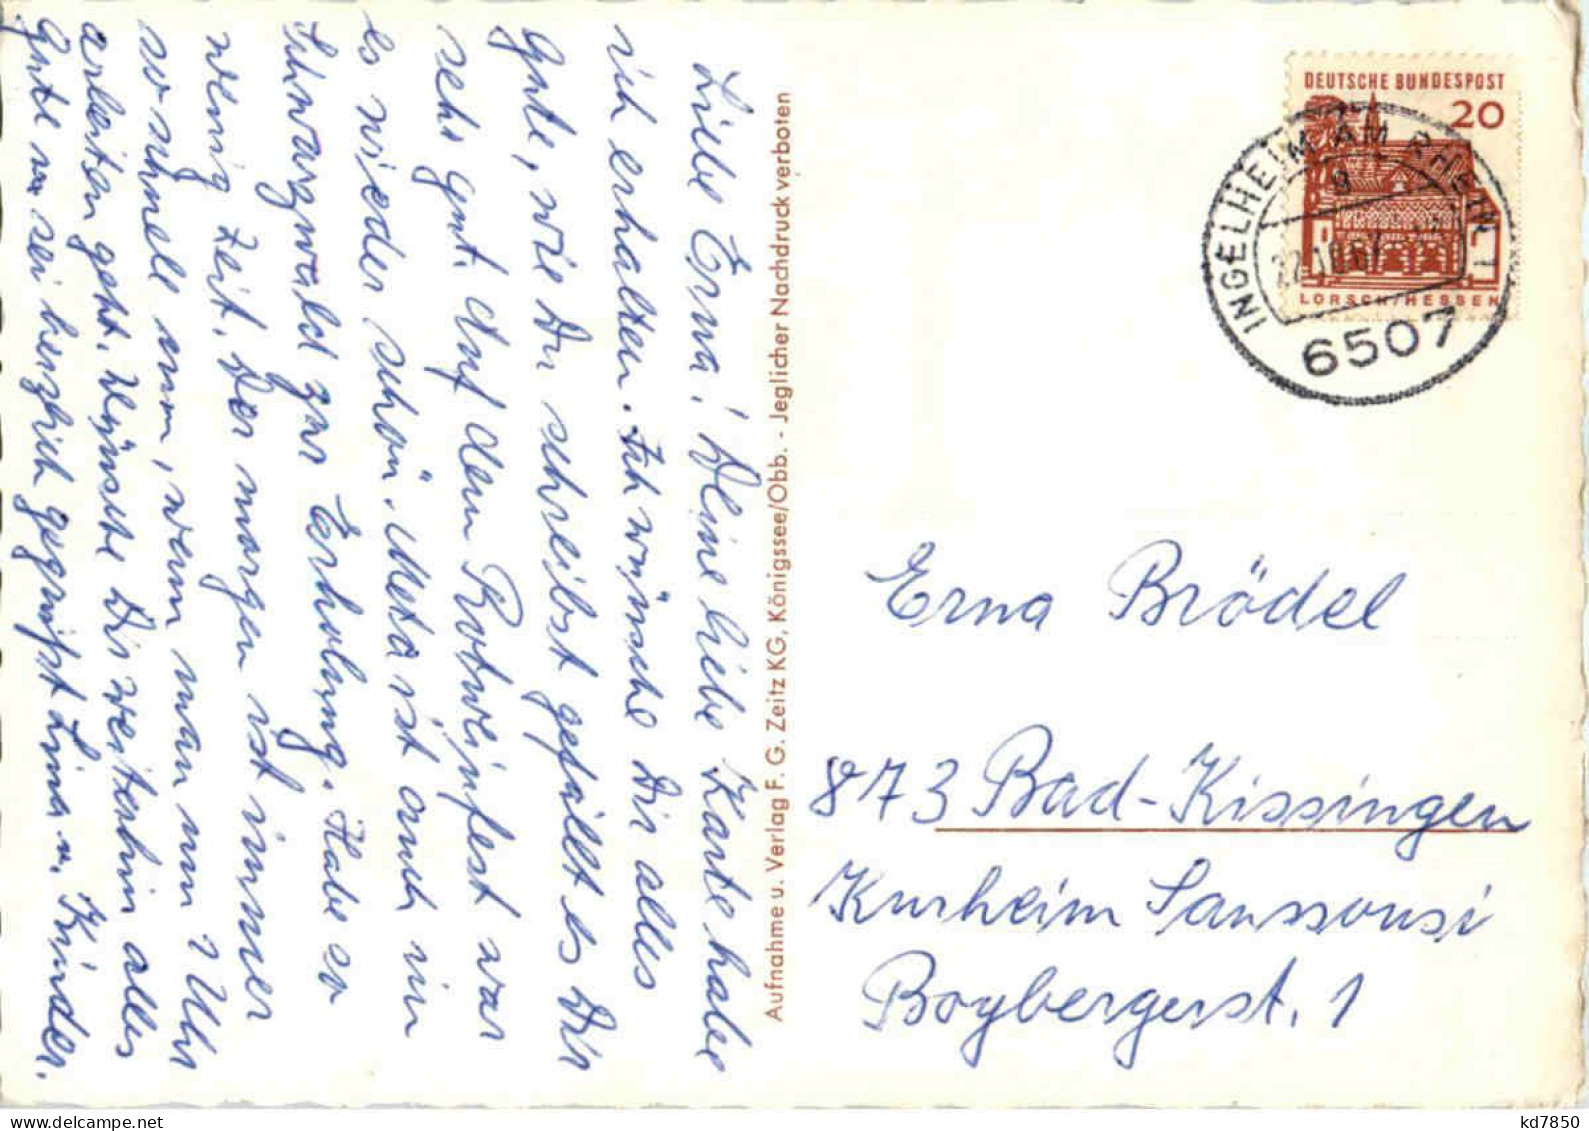 Liebe Erna! Deine liebe Karte habe
ich erhalten. Ich wünsche Dir alles
Gute, wie Du schreibst gefällt es Dir
sehr gut. Auf dem Rotweinfest war
es wieder schön. Meta ist auch im
Schwarzwald zur Erholung. Habe so
wenig Zeit. Der morgen ist immer
so schnell rum, wenn man um 7 Uhr
arbeiten geht. Wünsche Dir weiterhin alles
Gute u. sei herzlich gegrüßt Lina u. Kinder.
Aufnahme u. Verlag F. G. Zeitz KG, Königssee/Obb. - Jeglicher Nachdruck verboten
DEUTSCHE BUNDESPOST
20
LORSCH/HESSEN
INGELHEIM AM RHEIN 1
22.10.67
6507
Erna Brödel
873 Bad-Kissingen
Kurheim Sanssousi
Boybergerst. 1
kd7850